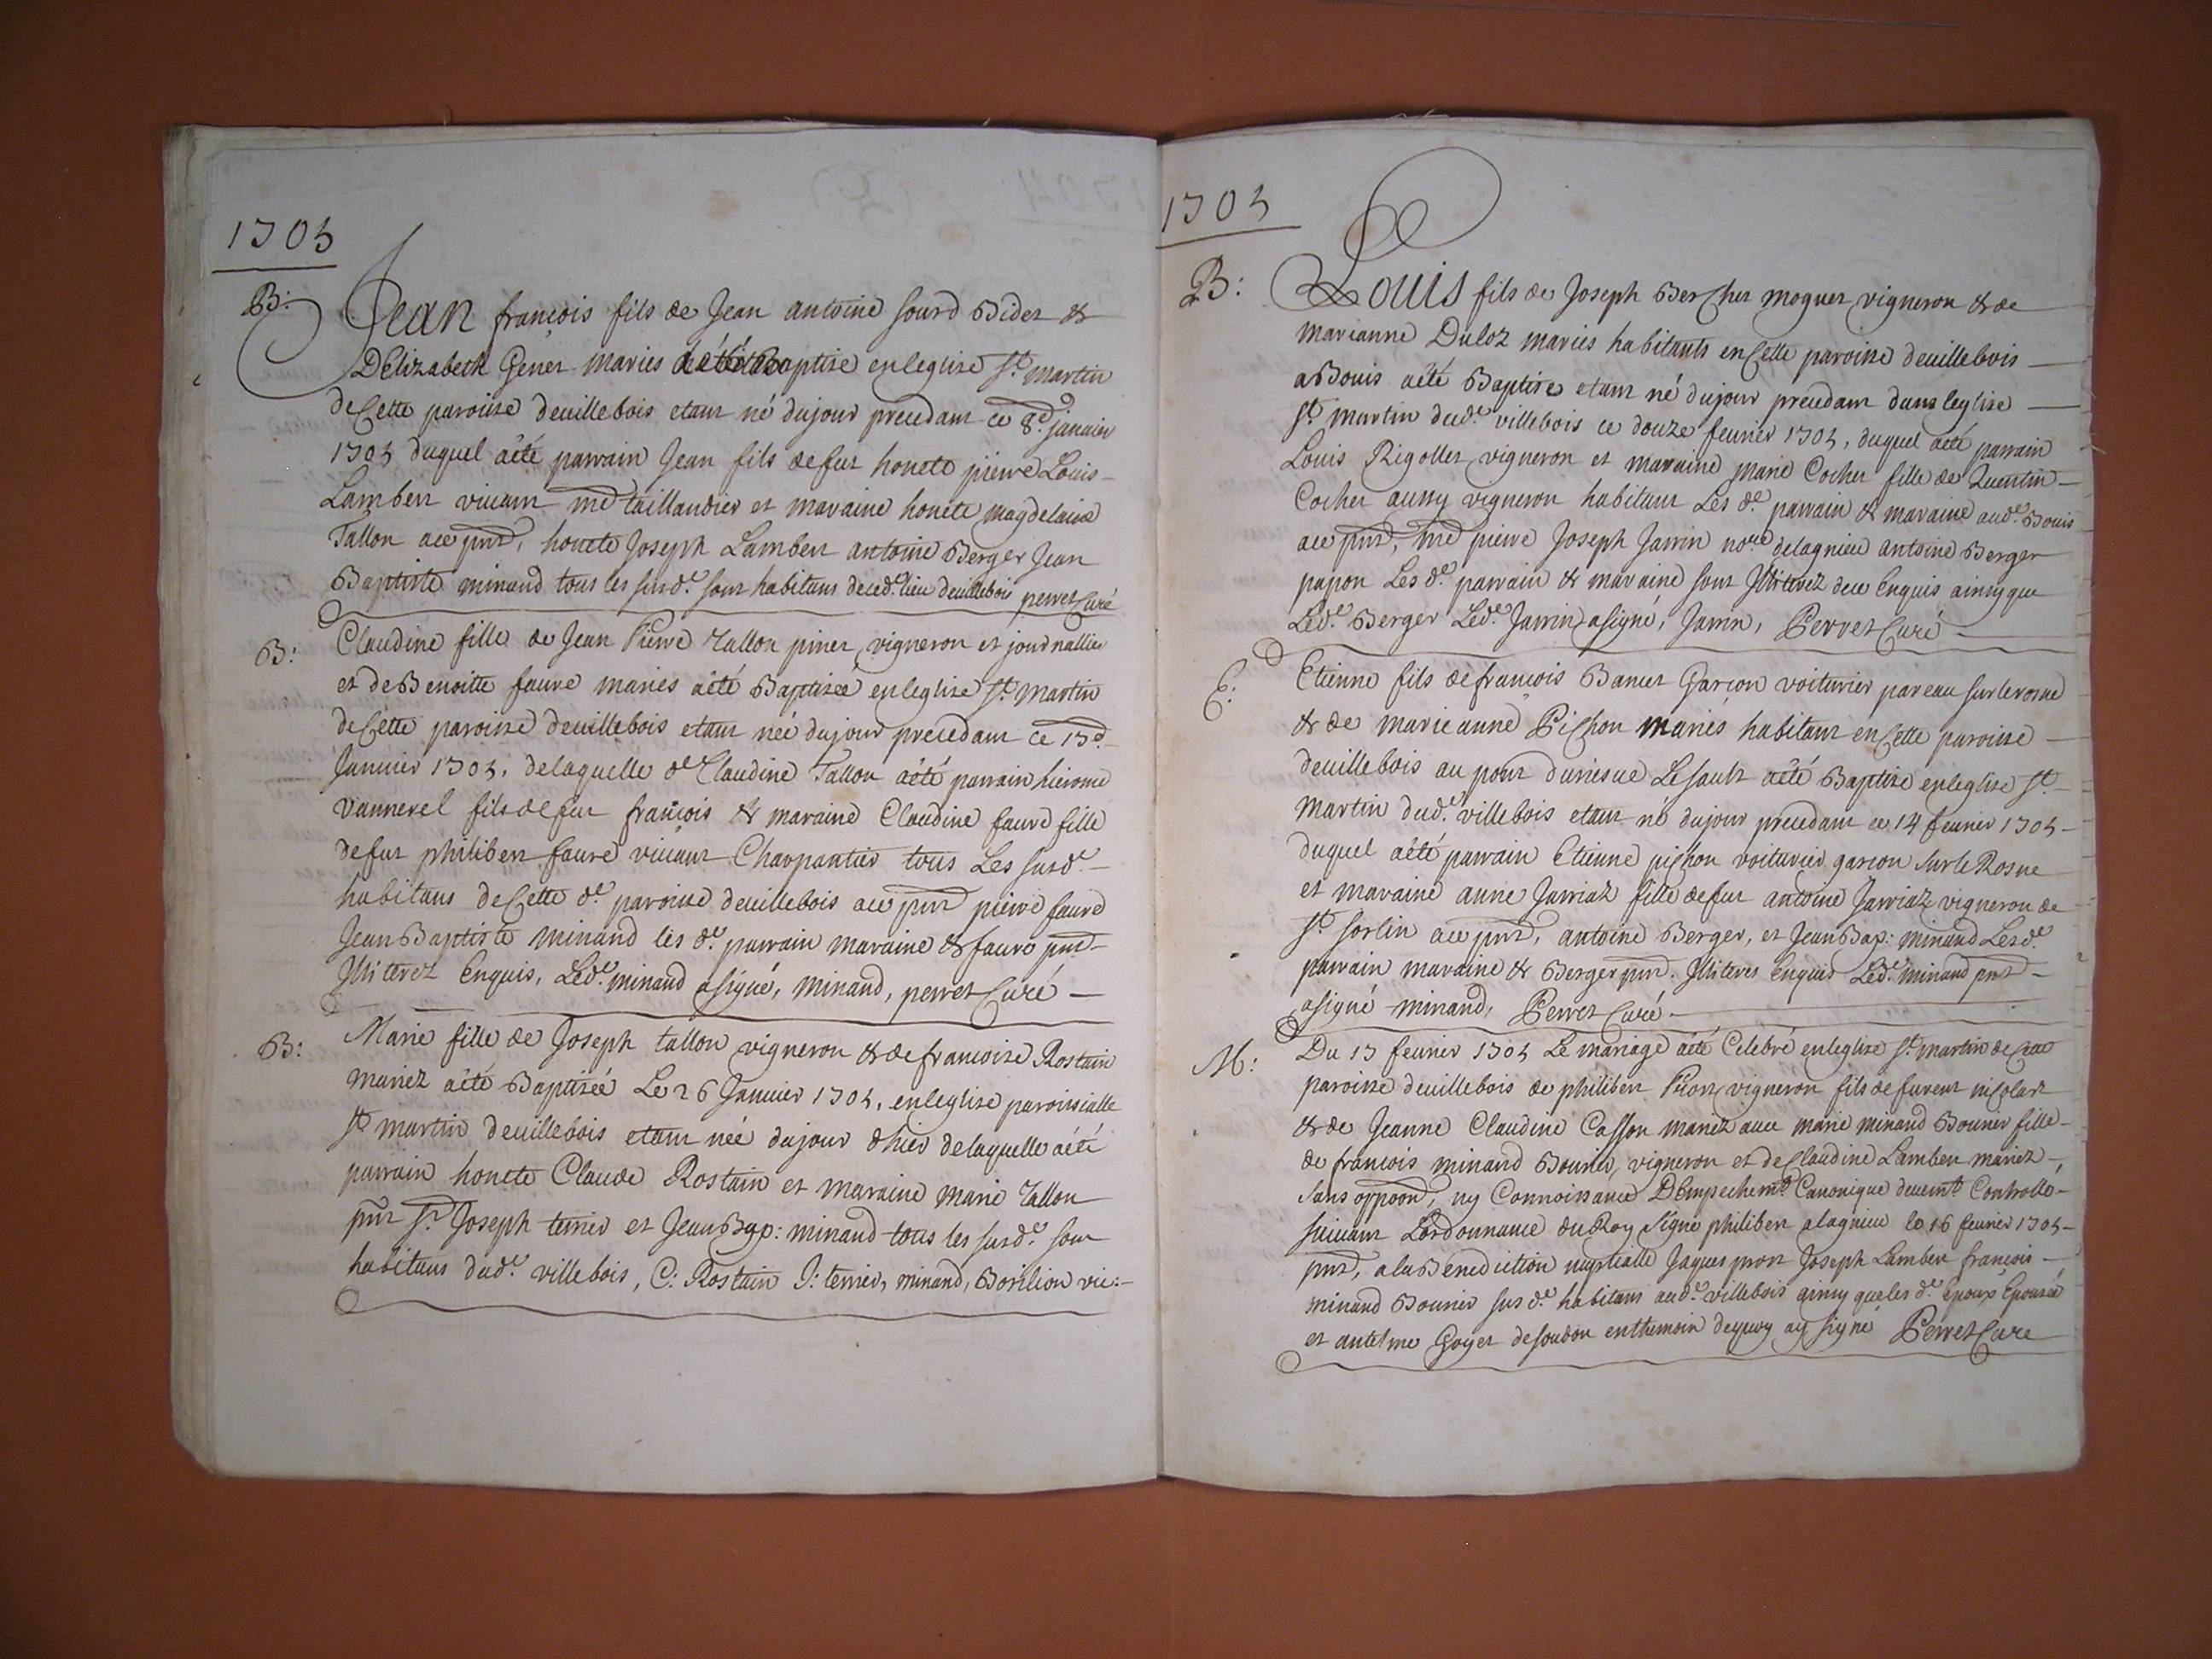 1705
B:
Jean francois fils de Jean antoine sourd Bidet &
DElizabeth Genet maries aété Baptise enleglise St. martin
deCette paroisse deuillebois etant né dujour precedant ce 8e. januier
1705 duquel aété parrain Jean fils defut honete pierre Louis
Lambert viuant md taillandier et maraine honete magdelaine
Tallon ace pnt, honete Joseph Lambert antoine Berger Jean
Baptiste minand tous les susd. sont habitans decedt. lieu deuillebois perret Curé
B:
Claudine fille de Jean Pierre Tallon pinet, vigneron et journallier
et deBenoitte faure mariés aété Baptisée enleglise St. Martin
deCette paroisse deuillebois etant née dujour precedant ce 15e.
Januier 1705. delaquelle de Claudine Tallon aété parrain hierome
vannerel fils defut francois & maraine Claudine faure fille
defut philibert faure viuant Charpantier tous Les susd.
habitans deCette de. paroisse deuillebois ace pnt pierre faure
Jean Baptiste minand les de. parrain maraine & faure pnt
Illiterez Enquis, Led. minand asigné, minand, perret Curé
B:
Marie fille de Joseph tallon vigneron & defrancoise Rostain
mariez aété Baptisée Le 26 Januier 1705, enleglise paroissialle
St martin deuillebois etant née dujour dhier delaquelle aété
parrain honete Claude Rostain et maraine marie Tallon
pnt sr. Joseph terrier et Jean Bap: minand tous les susd. sont
habitans dud. villebois, C: Rostain J: terrier, minand, Borilion vic:
1705
B:
Louis fils de Joseph BerCher moguet vigneron & de
marianne Duloz mariés habitants enCette paroisse deuillebois
aBouis aété Baptise etant né dujour precedant dans leglise
St. martin dud. villebois ce douze feurier 1705, duquel aété parrain
Louis Rigollet vigneron et maraine marie Cocher fille de Quentin
Cocher aussy vigneron habitant Les de. parrain & maraine aud. Bouis
ace pnt, me pierre Joseph Jarrin nore delagnieu antoine Berger
papon Les de. parrain & maraine sont Illiterez dece Enquis ainsy que
Led. Berger Led. Jarrin asigné, Jarrin, Perret Curé
B:
Etienne fils defrancois Bancet Garcon voiturier pareau surlerosne
& de marieanne PiChon mariés habitant enCette paroisse
deuillebois au port Lesault aété Baptise enleglise St.
Martin dud. villebois etant né dujour precedant ce 14 feurier 1705
duquel aété parrain Etienne piChon voiturier garcon surle Rosne
et maraine anne Jarriaz fille defut antoine Jarriaz vigneron de
St. sorlin ace pnt, antoine Berger, et Jean Bap: minand Lesd.
parrain maraine & Berger pnt. Illiteres Enquis Led. minand pnt
asigné minand, Perret Curé
M:
Du 17 feurier 1705 Le mariage aété Celebré enleglise St. martin deCette
paroisse deuillebois de philibert Piron vigneron fils de furent nicolas
& de Jeanne Claudine Casson mariez auec marie minand Bourier fille
de francois minand Bourier, vigneron et deClaudine Lambert mariez
sans oppoon, ny Connoissance DEmpechemt. Canonique deuemt. Controlle
suiuant Lordonnance du Roy signé philibert alagnieu le 16 feurier 1705
pnt, ala Bénediction nuptialle Jaques piron Joseph Lambert francois
minand Bourier sus de. habitans aud. villebois ainsy queles de. Epoux Epousée
et antelme Goyet desoudon enthemoin dequoy ay signé Perret Cure